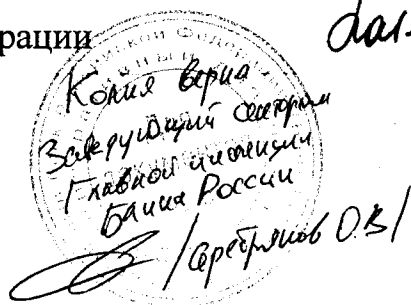 рации
Копия верна
Заведующий сектором
Главной инспекции
Банка России
/Серебряков О.В/